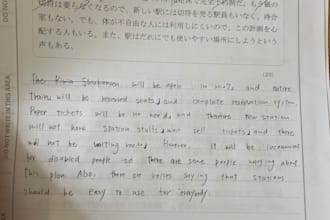 切符は要らなくなるので、新しい駅には切符を売る駅員もいなく、待合
室もない。でも、体が不自由な人には利用しにくいので、この計画を心
配する人もいる。また、駅はだれにでも使いやすい場所にしようという
声もある。
(20)
The Shinkansen will be open in 2027, and entire
train will be reserved seats and complete reservation system.
Paper tickets will be no need, and therefore new station
will not have station staffs who sell tickets, and there
will not be waiting room. However, it will be inconvenient
for disabled people so there are some people worrying about
this plan. Also, there are voices saying that stations
should be easy to use for everybody.
DO NOT WRITE IN THIS AREA